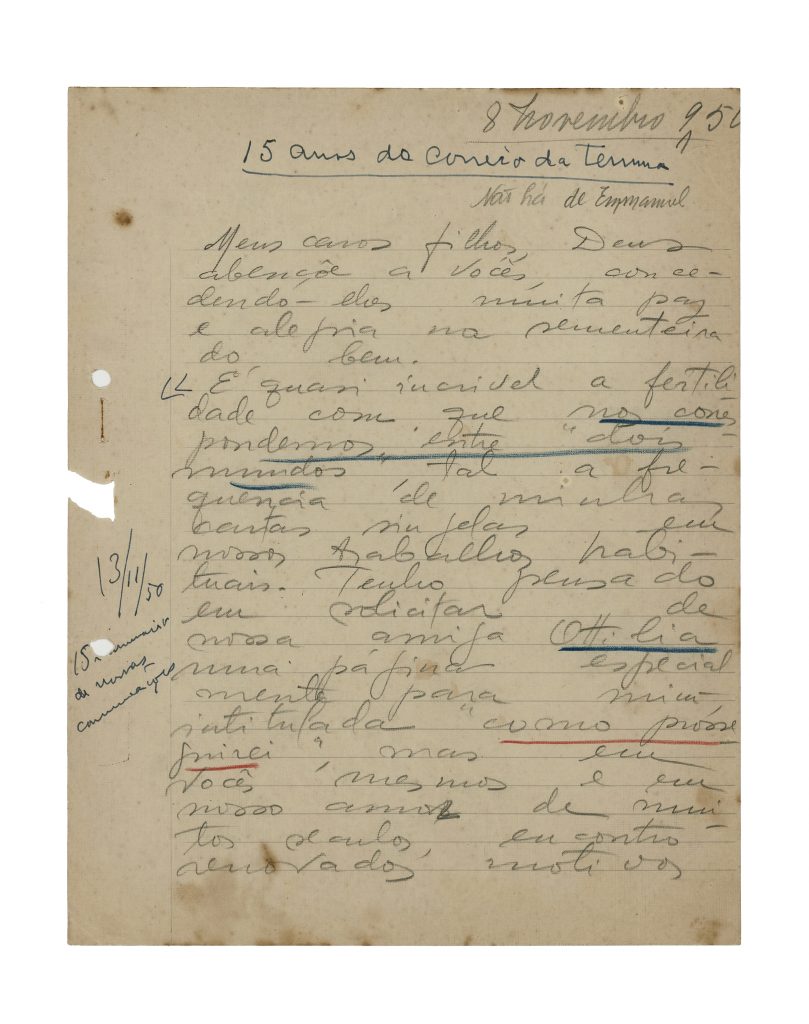 8 Novembro 950
15 anos do Correio da
Não há de Emmanuel
Meus caros filhos, Deus
abençôe a vocês, conce-
dendo-lhes muita paz
e alegria na sementeira
do bem.
É quasi incrivel a fertili-
dade com que nos corres
pondemos entre "dois
mundos" tal a fre-
quencia de minhas
cartas singelas em
nossos trabalhos habi-
tuais. Tenho pensado
em solicitar de
nossa amiga Ottilia
uma página especial
mente para mim
intitulada "como prosse
guirei", mas em
vocês mesmos e em
nosso amor de mui-
tos seculos, encontro
renovados motivos
13/11/50
15º
de nossas
comunicações